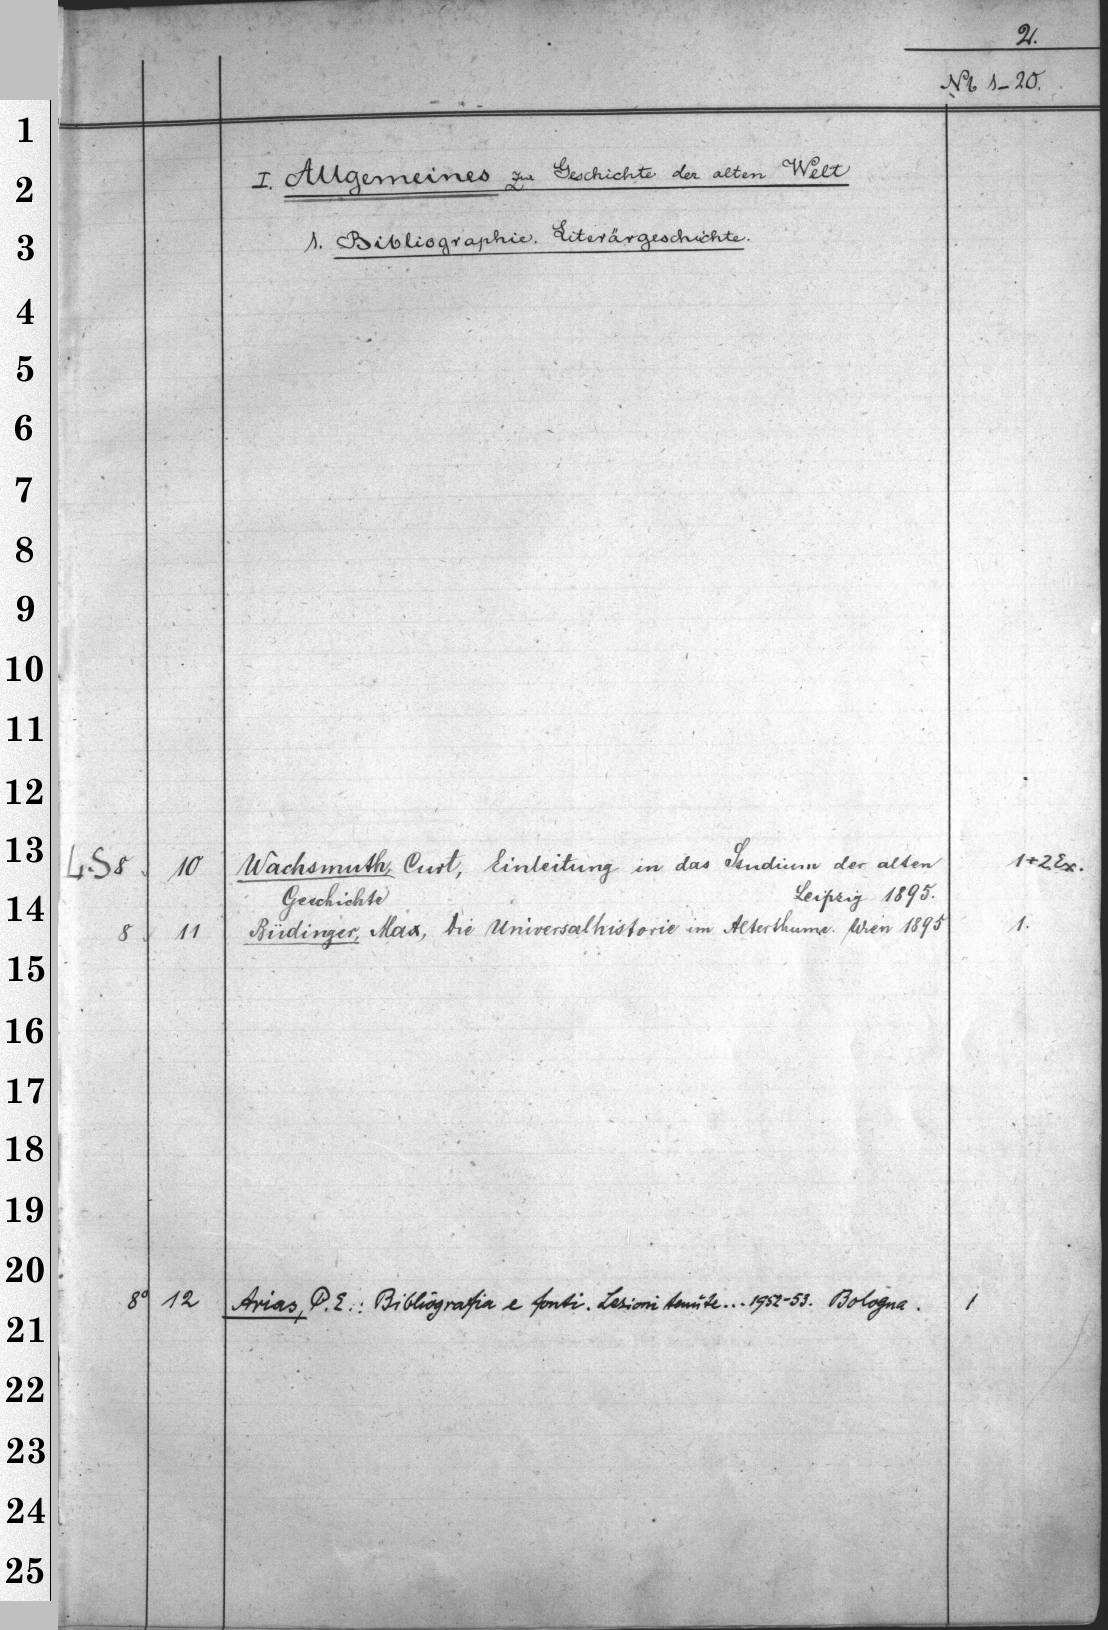 2.
Nb 1-20.
1
2
I. Allgemeines zur Geschichte der alten Welt
3
1. Bibliographie. Literärgeschichte.
4
5
6
7
8
9
10
11
12
13
L.S 8. 10 Wachsmuth, Curt, Einleitung in das Studium der alten 1+2 Ex.
14
Geschichte Leipzig 1895.
8. 11 Büdinger, Max, Die Universalhistorie im Alterthume. Wien 1895 1.
15
16
17
18
19
20
8° 12 Arias, P.E.: Bibliografia e fonti. Lezioni tenute... 1952-53. Bologna. 1
21
22
23
24
25